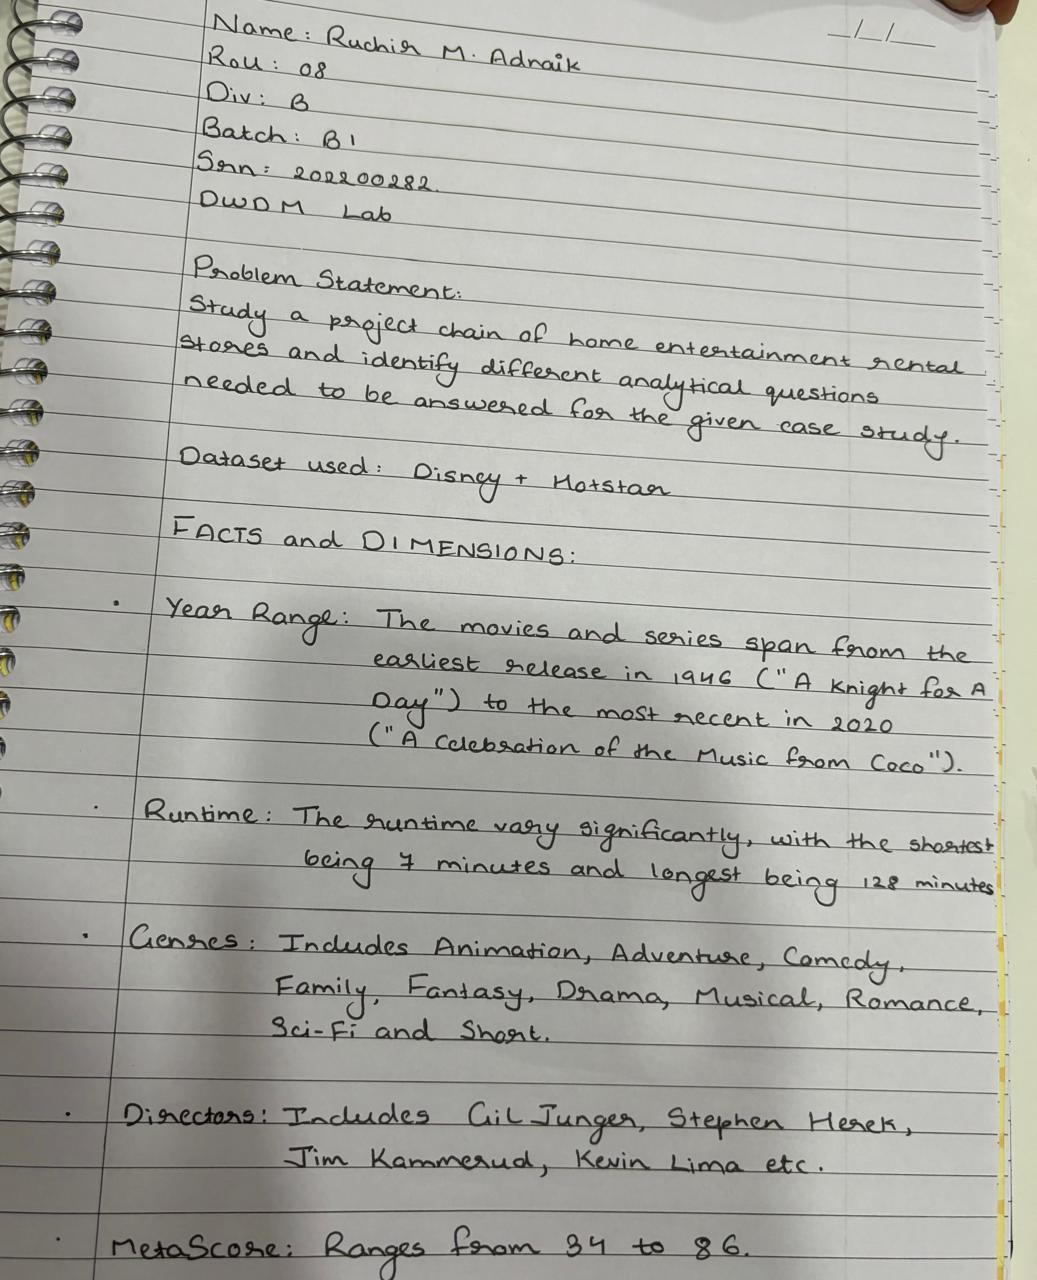 _/_/__
Name: Ruchir M. Adnaik
Roll: 08
Div: B
Batch: B1
Srn: 202200282.
DWDM Lab
Problem Statement:
Study a project chain of home entertainment rental
stores and identify different analytical questions
needed to be answered for the given case study.
Dataset used: Disney + Hotstar
FACTS and DIMENSIONS:
• Year Range: The movies and series span from the
earliest release in 1946 ("A Knight for A
Day") to the most recent in 2020
("A Celebration of the Music from Coco").
• Runtime: The runtime vary significantly, with the shortest
being 7 minutes and longest being 128 minutes
• Genres: Includes Animation, Adventure, Comedy,
Family, Fantasy, Drama, Musical, Romance,
Sci-Fi and Short.
• Directors: Includes Gil Junger, Stephen Herek,
Jim Kammerud, Kevin Lima etc.
• MetaScore: Ranges from 34 to 86.